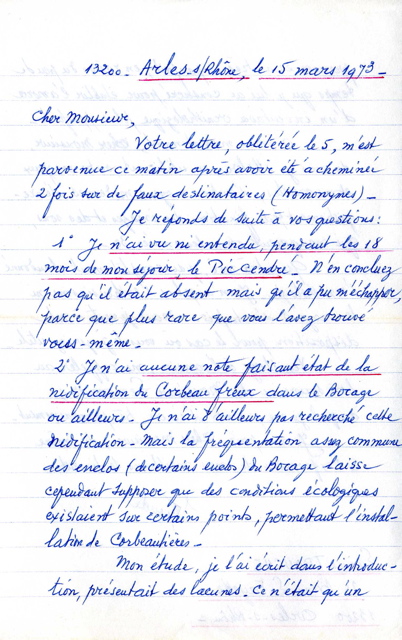 13200 - Arles s/Rhône, le 15 mars 1973 -
Cher Monsieur,
Votre lettre, oblitérée le 5, m'est
parvenue ce matin après avoir été acheminée
2 fois sur de faux destinataires (Homonymes) -
Je réponds de suite à vos questions :
1° Je n'ai vu ni entendu, pendant les 18
mois de mon séjour, le Pic Cendré. N'en concluez
pas qu'il était absent mais qu'il a pu m'échapper,
parce que plus rare que vous l'avez trouvé
vous-même.
2° Je n'ai aucune note faisant état de la
nidification du Corbeau freux dans le Bocage
ou ailleurs - Je n'ai d'ailleurs pas recherché cette
nidification - Mais la fréquentation assez commune
des enclos (de certains enclos) du Bocage laisse
cependant supposer que des conditions écologiques
existaient sur certains points, permettant l'instal-
lation de Corbeautières -
Mon étude, je l'ai écrit dans l'introduc-
tion, présentait des lacunes. Ce n'était qu'un